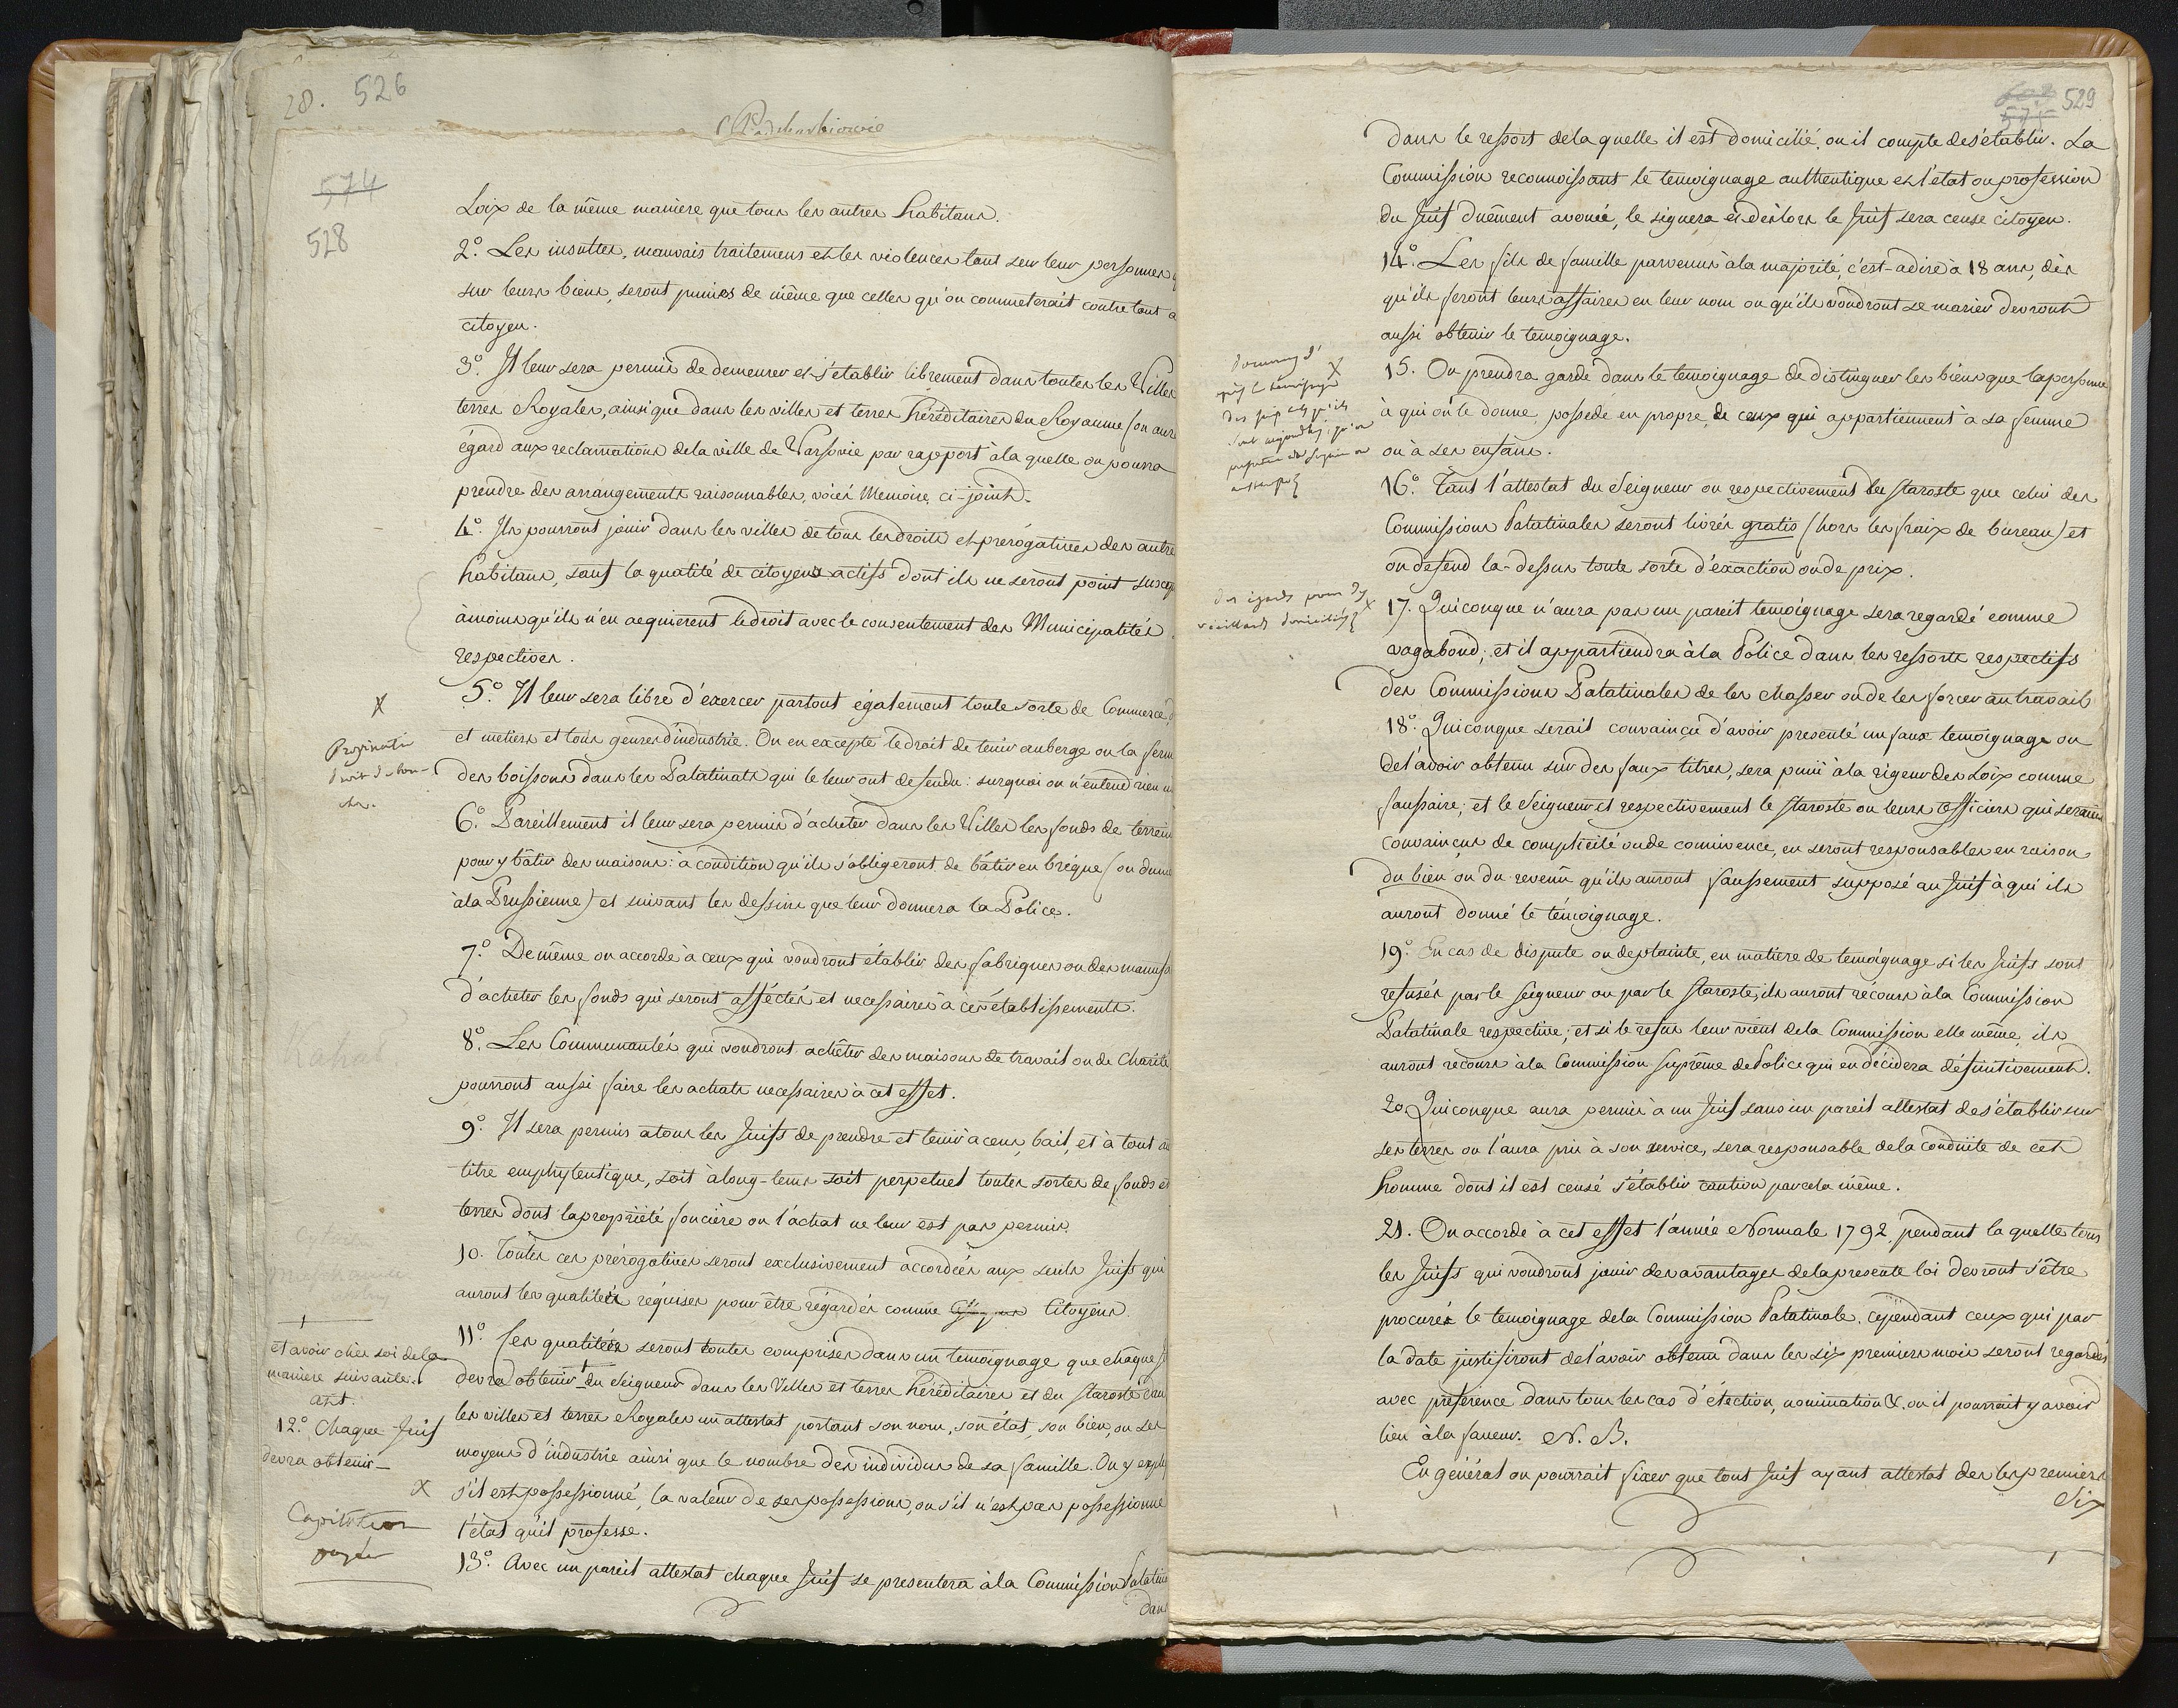 28. 526
574
528
Loix de la même maniere que tous les autres habitans.
2.° Les insultes, mauvais traitemens et les violences tant sur leur personnes
sur leurs biens, seront punies de même que celles qu'on commeterait contre tout a
citoyen.
3.° Il leur sera permis de demeurer et s'etablir librement dans toutes les Villes
terres Royales, ainsi que dans les villes et terres héréditaires du Royaume (on aura
égard aux reclamations dela ville de Varsovie par rapport àla quelle on pourra
prendre des arrangements raisonnables, voiés Memoire ci-joint.
4.° Ils pourront jouir dans les villes de tous les droits et prérogatives des autre
habitans, sauf la qualité de citoyens actifs dont ils ne seront point suscep
àmoins qu'ils n'en acquierent le droit avec le consentement des Municipalités
respectives.
X
5.° Il leur sera libre d'exercer partout également toute sorte de Commerce
et metiers et tous genres d'industrie. On en excepte le droit de tenir auberge ou la ferm
des boissons dans les Palatinats qui le leur ont defendu: surquoi on n'entend rien
6.° Pareillement il leur sera permis d'acheter dans les Villes les fonds de terrein
pour y bâtir des maisons: à condition qu'ils s'obligeront de bâtir en brique (ou dumoins
àla Prussienne) et suivant les dessins que leur donnera la Police.
7.° De même on accorde à ceux qui voudront établir des fabriques ou des manuf
d'acheter les fonds qui seront affectés et necessaires à ces établissements.
Kahal
8.° Les Communautés qui voudront acheter des maisons de travail ou de Charité
pourront aussi faire les achats necessaires à cet effet.
9.° Il sera permis atous les Juifs de prendre et tenir à cens, bail, et à tout au
titre emphyteutique, soit àlong-tems soit perpetuel toutes sortes de fonds et
terres dont lapropriété fonciere ou l'achat ne leur est pas permis.
10. Toutes ces prérogatives seront exclusivement accordées aux seuls Juifs qui
auront les qualités réquises pour être régardés comme Citoyens.
11.° Ces qualités seront toutes comprises dans un temoignage que chaque J
devra obtenir du Seigneur dans les Villes et terres héréditaires et du Staroste dan
les villes et terres Royales un attestat portant son nom, son état, son bien, ou ses
moyens d'industrie ainsi que le nombre des individus de sa famille. On y expl
s'il est possessionné, la valeur de ses possessions, ou s'il n'est pas possessionné
l'état qu'il professe.
et avoir chés soi dela
maniere suivante.
art.
12.° Chaque Juif
devra obtenir_
X
Capitation
payée
13.° Avec un pareil attestat chaque Juif se presentera àla Commission Palatina
dans
529
575
dans le ressort dela quelle il est domicilié, ou il compte de s'établir. La
Commission reconnoissant le temoignage authentique et l'état ou profession
du Juif duêment avouée, le signera et dèslors le Juif sera censé citoyen.
14.° Les fils de famille parvenus àla majorité, c'est-adire à 18 ans, dès
qu'ils feront leurs affaires en leur nom ou qu'ils voudront se marier devront
aussi obtenir le temoignage.
X
15. On prendra garde dans le temoignage de distinguer les biens que lapersonne
à qui on le donne, possede en propre, de ceux qui appartiennent à sa femme
ou à ses enfans.
16.° Tant l'attestat du Seigneur ou respectivement du Staroste que celui des
Commissions Palatinales seront livrés gratis (hors les fraix de bureau) et
on defend la-dessus toute sorte d'éxaction ou de prix.
des égards pour
vieillards domiciliés
X
17. Quiconque n'aura pas un pareil temoignage sera regardé comme
vagabond, et il appartiendra àla Police dans les ressorts respectifs
des Commissions Palatinales de les chasser ou de les forcer au travail
18.° Quiconque serait convaincu d'avoir presenté un faux temoignage ou
del'avoir obtenu sur des faux titres, sera puni àla rigeur des Loix comme
faussaire; et le Seigneur et respectivement le Staroste ou leurs Officiers qui seraient
convaincus de complicité ou de connivence, en seront responsables en raison
du bien ou du revenu qu'ils auront faussement supposé au Juif à qui ils
auront donné le témoignage.
19.° En cas de dispute ou deplainte, en matiere de temoignage si les Juifs sont
refusés par le Seigneur ou par le Staroste, ils auront récours àla Commission
Palatinale respective; et si le refus leur vient dela Commission elle même, ils
auront recours àla Commission Suprême de Police qui en décidera définitivement.
20. Quiconque aura permis à un Juif sans un pareil attestat de s'établir sur
ses terres ou l'aura pris à son service, sera responsable dela conduite de cet
homme dont il est censé s'établir caution par cela même.
21. On accorde à cet effet l'année Normale 1792, pendant la quelle tous
les Juifs qui voudront jouir des avantages delapresente loi devront s'être
procurés le temoignage dela Commission Palatinale, cependant ceux qui par
la date justifiront del'avoir obtenu dans les six premiers mois seront regardés
avec préference dans tous les cas d'élection, nomination &. ou il pourrait y avoir
lieu àla faveur. N. B.
En général on pourrait fixer que tout Juif ayant attestat des les premiers
Six